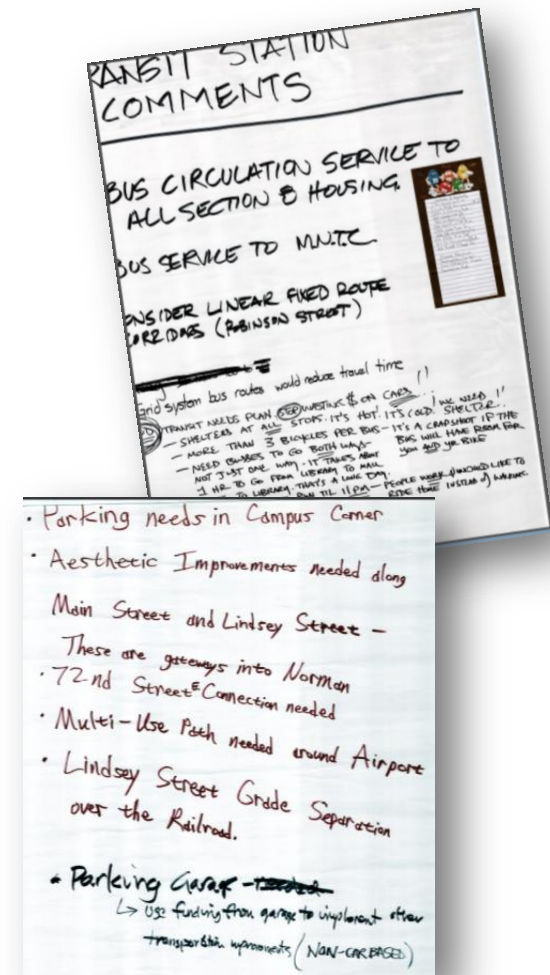 RANSIT STATION
COMMENTS
BUS CIRCULATION SERVICE TO
ALL SECTION 8 HOUSING.
BUS SERVICE TO M.N.T.C.
ONSIDER LINEAR FIXED ROUTE
CORRIDORS (ROBINSON STREET)
grid system bus routes would reduce travel time
TRANSIT NEEDS PLAN. STOP WASTING $ ON CARS!!
- SHELTERS AT ALL STOPS. IT'S HOT! IT'S COLD! WE NEED SHELTER!!
- MORE THAN 3 BICYCLES PER BUS - IT'S A CRAPSHOOT IF THE
BUS WILL HAVE ROOM FOR
YOU AND YR BIKE
- NEED BUSSES TO GO BOTH WAYS -
NOT JUST ONE WAY. IT TAKES ABOUT
1 HR TO GO FROM LIBRARY TO MALL
TO LIBRARY. THAT'S A LONG DAY.
RUN TIL 11PM - PEOPLE WORK & WOULD LIKE TO
RIDE HOME INSTEAD of WALKING
• Parking needs in Campus Corner
• Aesthetic Improvements needed along
Main Street and Lindsey Street -
These are gateways into Norman
• 72nd Street E Connection needed
• Multi-Use Path needed around Airport
• Lindsey Street Grade Separation
over the Railroad.
• Parking Garage -
↳ Use funding from garage to implement other
transportation improvements (NON-CAR BASED)